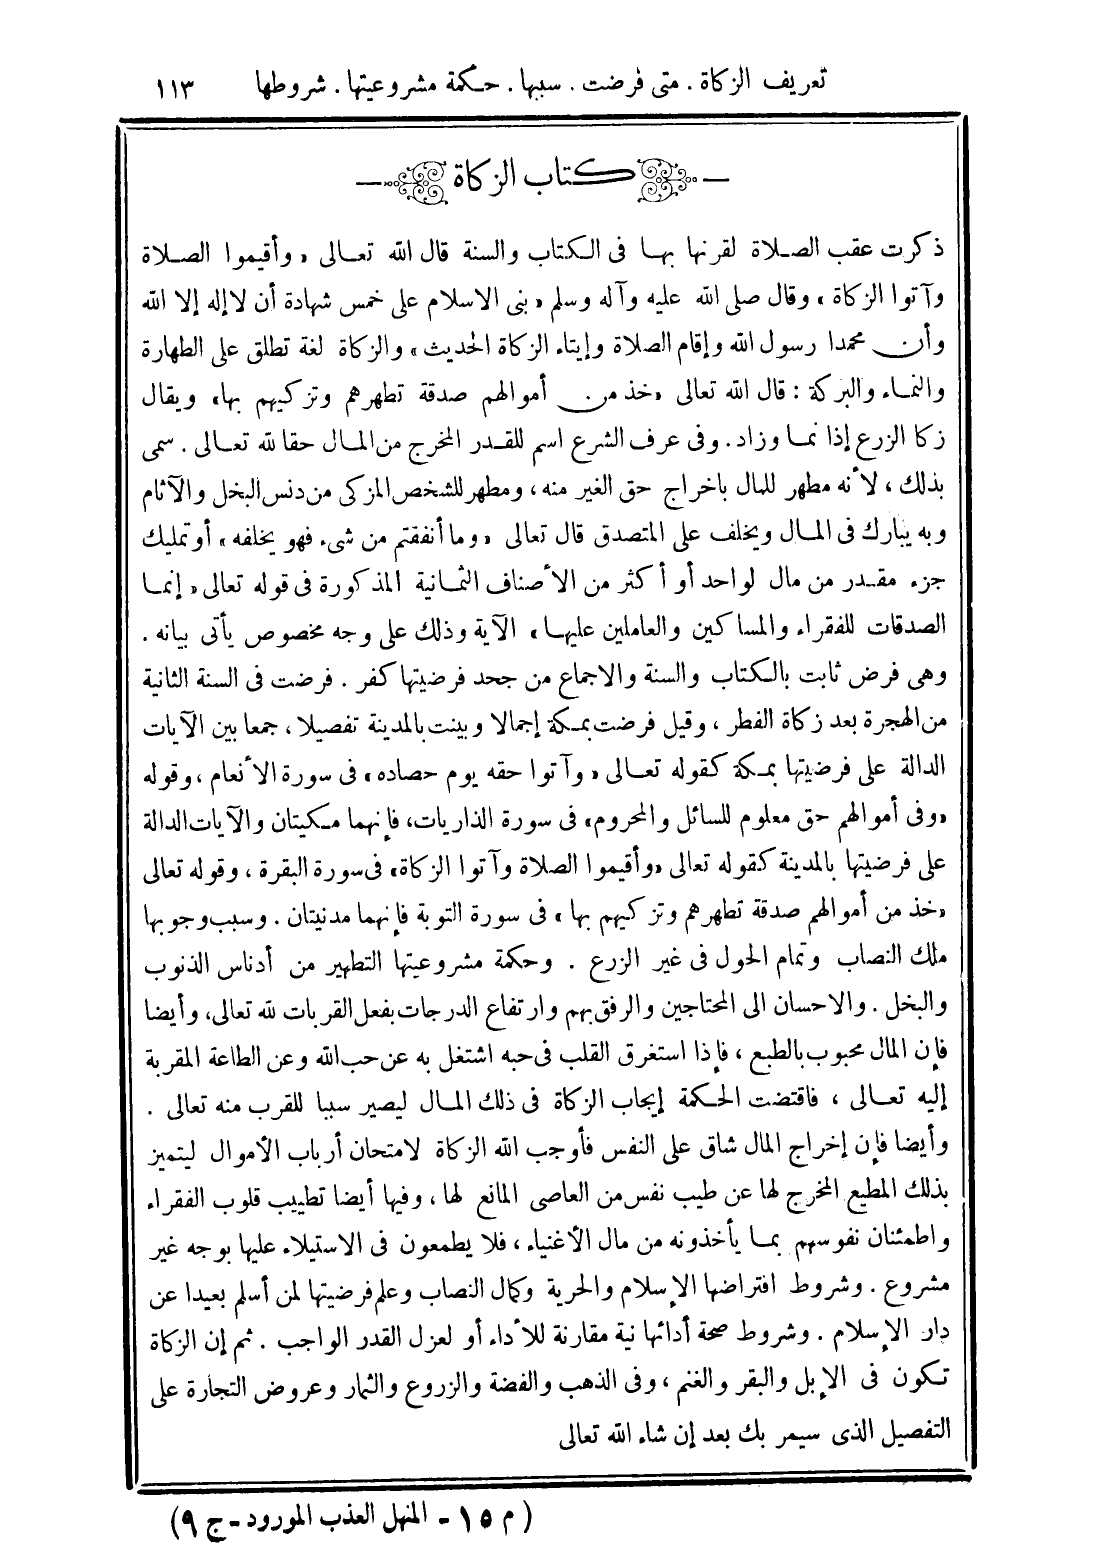 تعريف الزكاة . متى فرضت . سببها . حكمة مشروعيتها . شروطها ١١٣
كتاب الزكاة
ذكرت عقب الصلاة لقرنها بها فى الكتاب والسنة قال الله تعالى «وأقيموا الصلاة
وآتوا الزكاة» وقال صلى الله عليه وآله وسلم «بنى الاسلام على خمس شهادة أن لا إله إلا الله
وأن محمدا رسول الله وإقام الصلاة وإيتاء الزكاة الحديث» والزكاة لغة تطلق على الطهارة
والنماء والبركة : قال الله تعالى «خذ من أموالهم صدقة تطهرهم وتزكيهم بها» ويقال
زكا الزرع إذا نما وزاد . وفى عرف الشرع اسم للقدر المخرج من المال حقا لله تعالى . سمى
بذلك ، لأنه مطهر للمال باخراج حق الغير منه ، ومطهر للشخص المزكى من دنس البخل والآثام
وبه يبارك فى المال ويخلف على المتصدق قال تعالى «وما أنفقتم من شىء فهو يخلفه» أو تمليك
جزء مقدر من مال لواحد أو أكثر من الأصناف الثمانية المذكورة فى قوله تعالى «إنما
الصدقات للفقراء والمساكين والعاملين عليها» الآية وذلك على وجه مخصوص يأتى بيانه .
وهى فرض ثابت بالكتاب والسنة والاجماع من جحد فرضيتها كفر . فرضت فى السنة الثانية
من الهجرة بعد زكاة الفطر ، وقيل فرضت بمكة إجمالا وبينت بالمدينة تفصيلا ، جمعا بين الآيات
الدالة على فرضيتها بمكة كقوله تعالى «وآتوا حقه يوم حصاده» فى سورة الأنعام ، وقوله
«وفى أموالهم حق معلوم للسائل والمحروم» فى سورة الذاريات، فإنهما مكيتان والآيات الدالة
على فرضيتها بالمدينة كقوله تعالى «وأقيموا الصلاة وآتوا الزكاة» فى سورة البقرة ، وقوله تعالى
«خذ من أموالهم صدقة تطهرهم وتزكيهم بها» فى سورة التوبة فإنهما مدنيتان . وسبب وجوبها
ملك النصاب وتمام الحول فى غير الزرع . وحكمة مشروعيتها التطهير من أدناس الذنوب
والبخل . والاحسان الى المحتاجين والرفق بهم وارتفاع الدرجات بفعل القربات لله تعالى، وأيضا
فإن المال محبوب بالطبع ، فإذا استغرق القلب فى حبه اشتغل به عن حب الله وعن الطاعة المقربة
إليه تعالى ، فاقتضت الحكمة إيجاب الزكاة فى ذلك المال ليصير سببا للقرب منه تعالى .
وأيضا فإن إخراج المال شاق على النفس فأوجب الله الزكاة لامتحان أرباب الأموال ليتميز
بذلك المطيع المخرج لها عن طيب نفس من العاصى المانع لها ، وفيها أيضا تطييب قلوب الفقراء
واطمئنان نفوسهم بما يأخذونه من مال الأغنياء ، فلا يطمعون فى الاستيلاء عليها بوجه غير
مشروع . وشروط افتراضها الإسلام والحرية وكمال النصاب وعلم فرضيتها لمن أسلم بعيدا عن
دار الإسلام . وشروط صحة أدائها نية مقارنة للأداء أو لعزل القدر الواجب . ثم إن الزكاة
تكون فى الإبل والبقر والغنم ، وفى الذهب والفضة والزروع والثمار وعروض التجارة على
التفصيل الذى سيمر بك بعد إن شاء الله تعالى
(م ١٥ - المنهل العذب المورود - ج ٩)